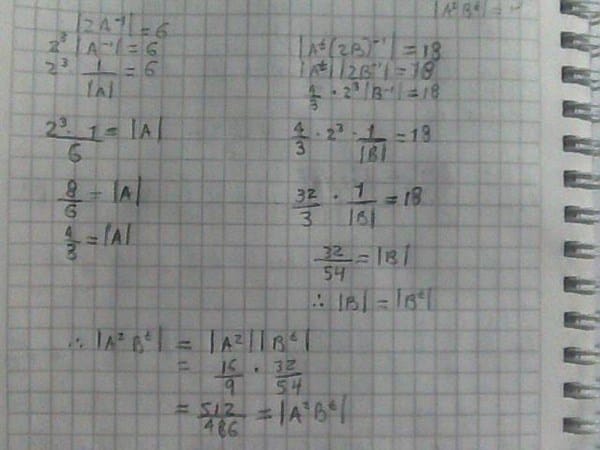 |2A⁻¹| = 6
2³ |A⁻¹| = 6
2³ · 1/|A| = 6
2³ · 1/6 = |A|
8/6 = |A|
4/3 = |A|
|A²B⁶| =
|Aᵗ(2B)⁻¹| = 18
|Aᵗ||2B⁻¹| = 18
4/3 · 2³ |B⁻¹| = 18
4/3 · 2³ · 1/|B| = 18
32/3 · 1/|B| = 18
32/54 = |B|
∴ |B| = |Bᵗ|
∴ |A²Bᵗ| = |A²||Bᵗ|
= 16/9 · 32/54
= 512/486 = |A²Bᵗ|